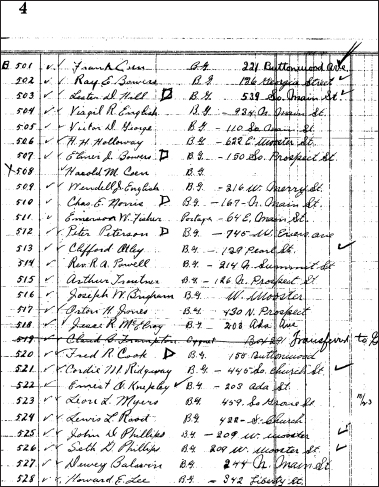 4
B 501 ✓✓ Frank Coen B.G. 221 Buttonwood Ave ✓
502 ✓✓ Ray E. Bowers B.G. 126 Georgia Street ✓
503 ✓✓ Lester D. Hall B.G. 539 So. Main St. ✓
504 ✓✓ Virgil R. English B.G. - 924 N. Main St.
505 ✓✓ Victor D. George B.G. - 110 So. Main St.
506 ✓✓ H. H. Holloway B.G. - 622 E. Wooster St.
507 ✓✓ Elmer J. Bowers B.G. - 150 So. Prospect St.
X 508 ✓✓ Harold M. Coen B.G.
509 ✓✓ Wendell J. English B.G. - 216 W. Merry St.
510 ✓✓ Chas. E. Norris B.G. - 167 - N. Main St.
511 ✓✓ Emerson W. Fisher Portage - 64 E. Main St.
512 ✓✓ Peter Peterson B.G. - 745 W. Evers ave
513 ✓✓ Clifford B.G. - 128 Pearl St. ✓
514 ✓✓ Rev. R. A. Powell B.G. - 214 N. Summit St.
515 ✓✓ Arthur Troutner B.G. - 126 N. Prospect St.
516 ✓✓ Joseph W. Brigham B.G. W. Wooster
517 ✓✓ Orton H. Jones B.G. - 430 N. Prospect
518 ✓✓ Isaac R. B.G. - 203 Ada Ave
519 ✓✓ Clard G. Frampton Cygnet Box 291 Transferred to
520 ✓✓ Fred R. Cook B.G. 150 Buttonwood
521 ✓✓ Cordie M. Ridgway B.G. - 445 So. Church St. ✓
522 ✓✓ Ernest A. Knepley ✓ B.G. - 203 Ada St.
523 ✓✓ Leon L. Myers B.G. 459 So Grove St
524 ✓✓ Lewis L. Root B.G. 422 - S. Church
525 ✓✓ John D. Phillips B.G. - 209 W. Wooster ✓
526 ✓✓ Seth D. Phillips B.G. 209 W. Wooster St. ✓
527 ✓✓ Dewey Balsvin B.G. 244 N. Main St.
528 ✓✓ Howard E. Lee B.G. - 342 Liberty St.